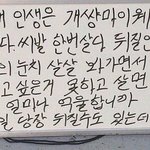 인생은 개상마이웨
다. 씨발 한번살다 뒤질인
의 눈치 살살 봐가면서
고 싶은거 못하고 살면
얼마나 억울합니까
당장 뒤질수도 있는데